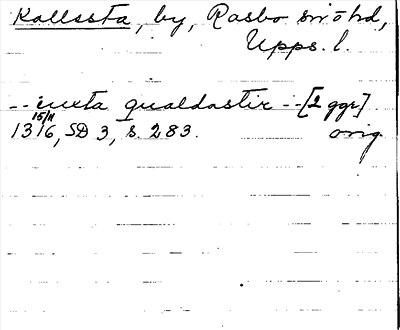 Kallssta, by, Rasbo sn o hd,
Upps. l.
-- iuxta qualdastir -- [2 ggr].
15/11
1316, SD 3, s. 283. orig